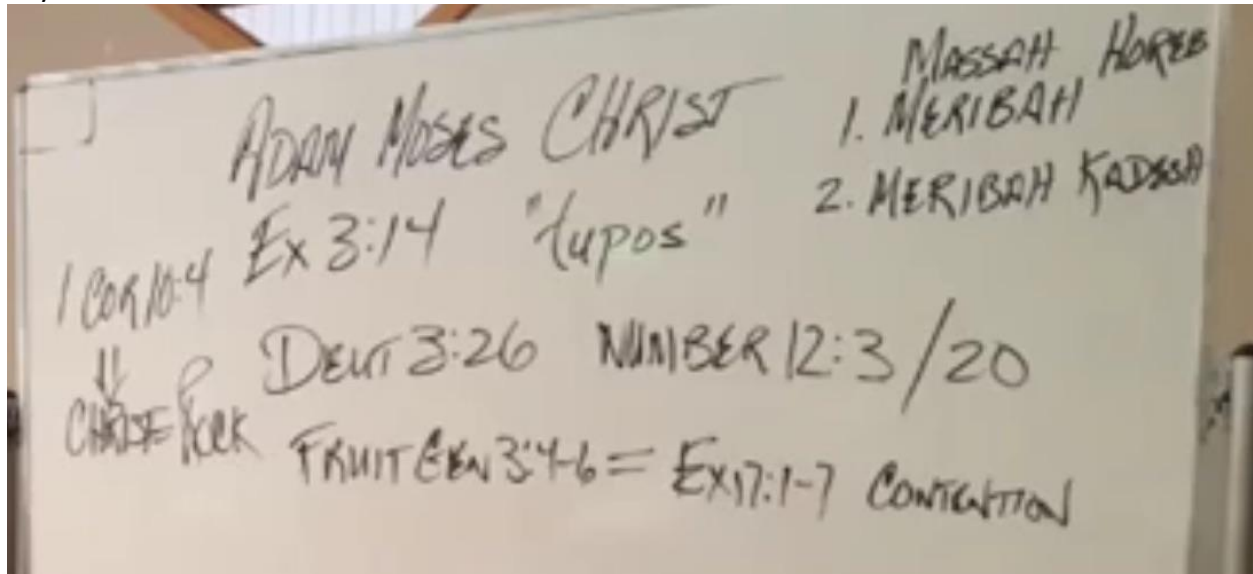 MASSAH HOREB
ADAM MOSES CHRIST
1. MERIBAH
Ex 3:14 "tupos"
2. MERIBAH KADESH
1 COR 10:4
DEUT 3:26 NUMBER 12:3/20
⇓
ROCK
FRUIT GEN 3:4-6 = EX 17:1-7 CONTENTION